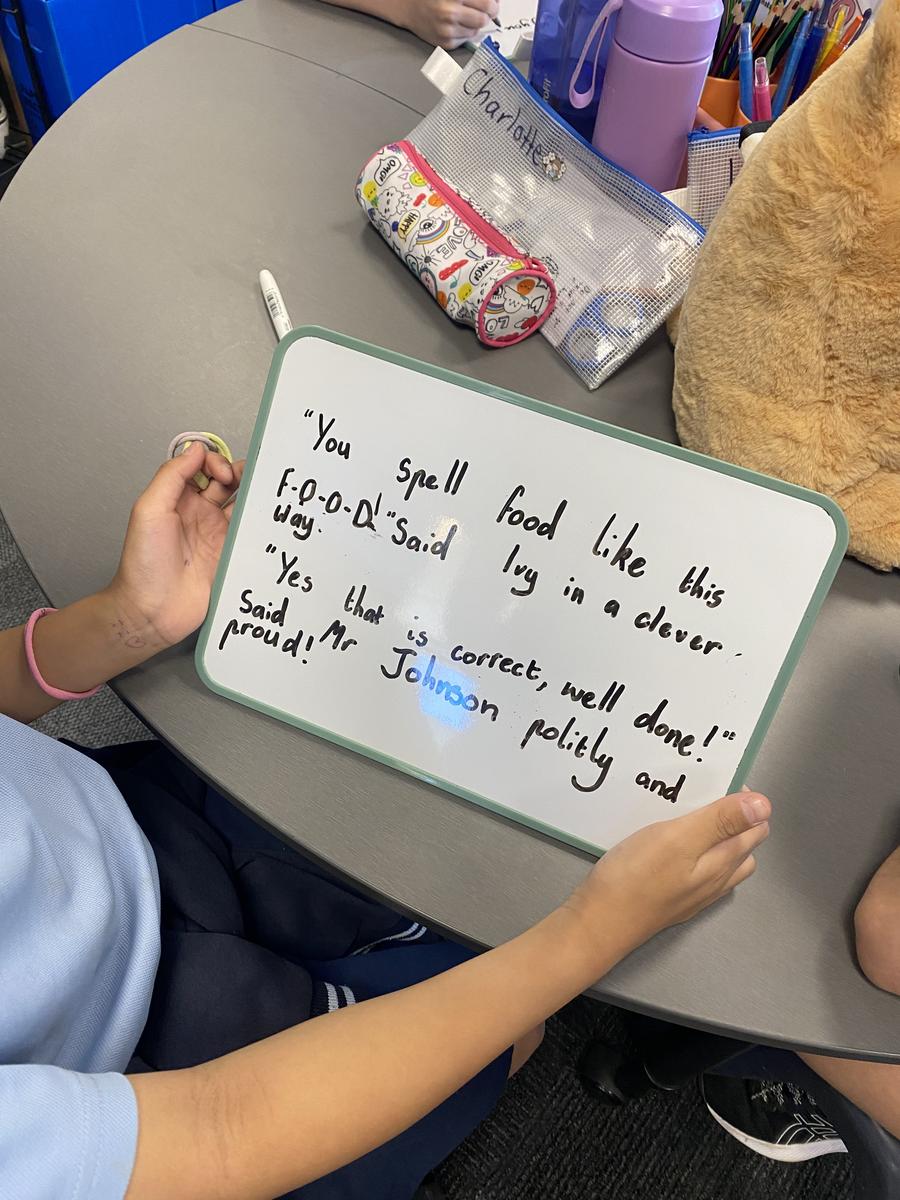 Charlotte
OMG!
HAPPY
LOVE
OMG!
"You spell food like this
F-O-O-D!" Said Ivy in a clever
way.
"Yes that is correct, well done!"
Said Mr Johnson politly and
proud!